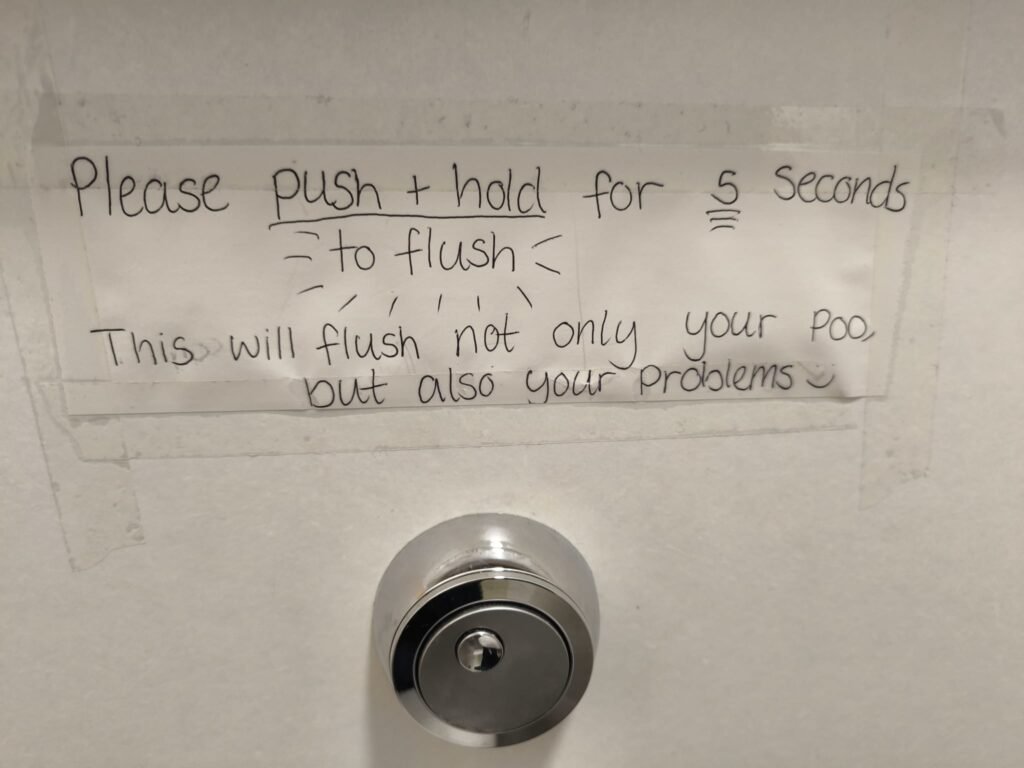 Please push + hold for 5 seconds
to flush
This will flush not only your poo,
but also your problems